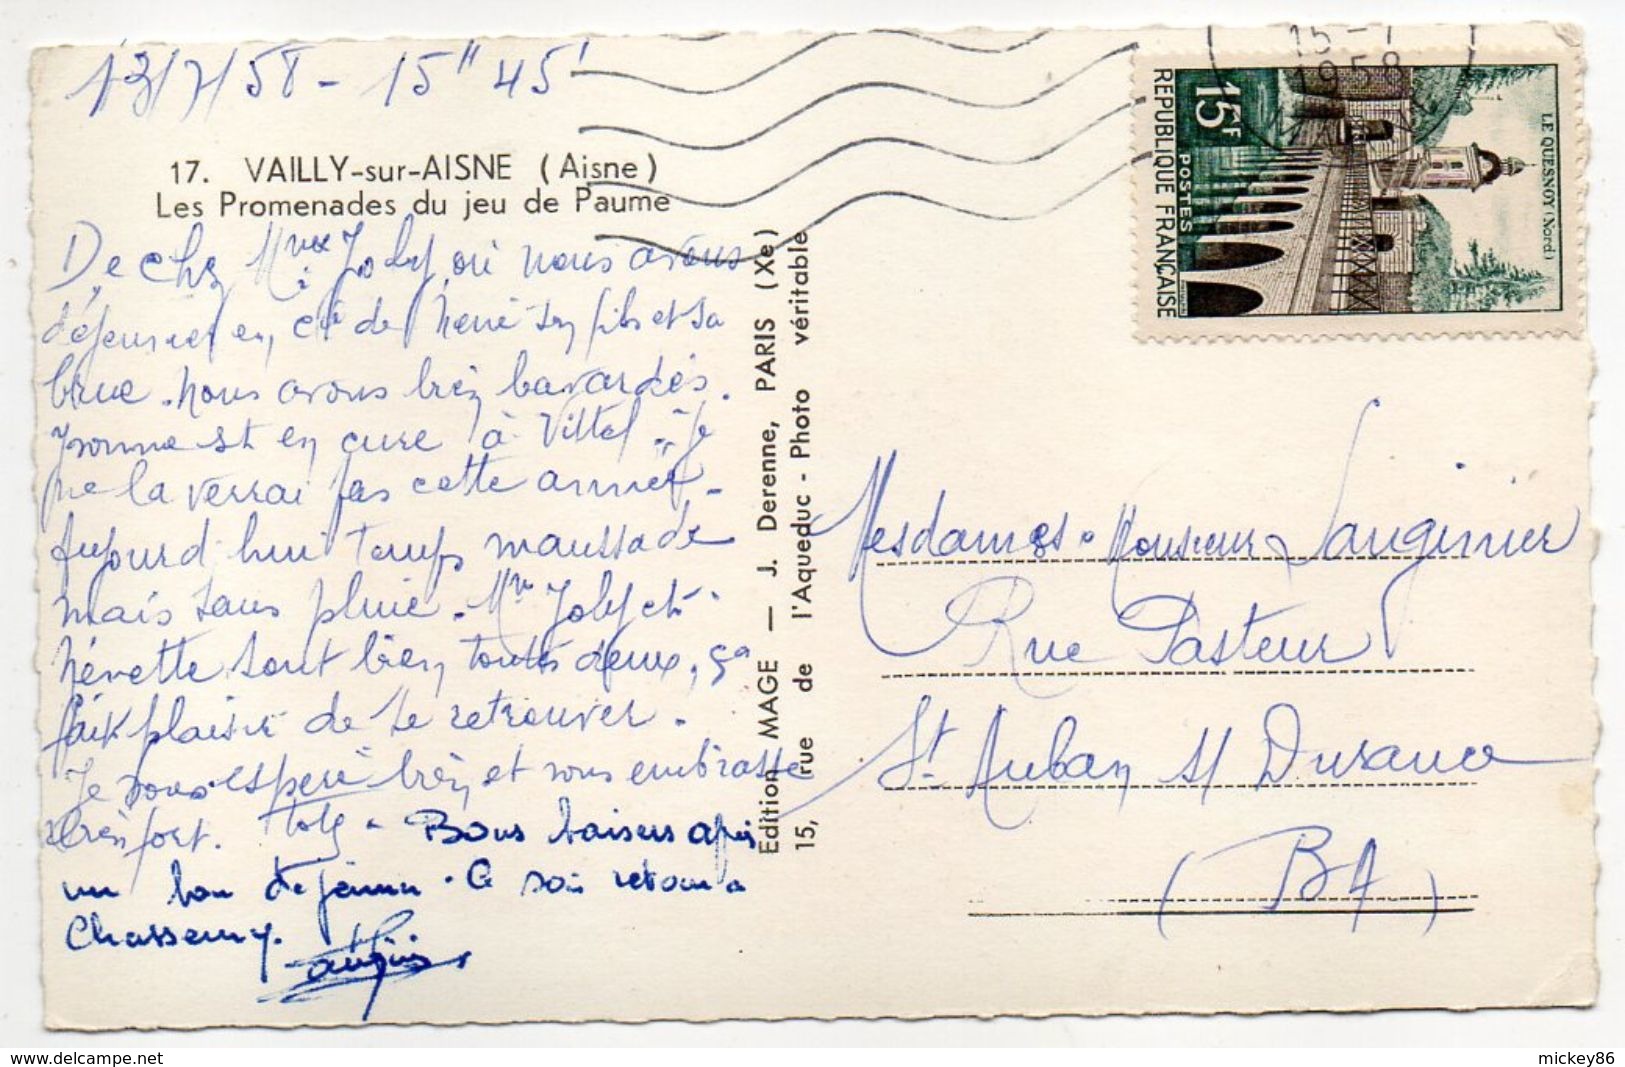 13/7/58 - 15" 45'
17. VAILLY-sur-AISNE (Aisne)
Les Promenades du jeu de Paume
De chez Mme Joly où nous avons
déjeuner en Cie de René son fils et sa
brue. Nous avons bien bavardés.
Yvonne est en cure à Vittel. Je
ne la verrai pas cette année.
Aujourd'hui temps maussade
mais sans pluie. Mme Joly et
Nénette sont bien toutes deux, ça
fait plaisir de se retrouver.
Je vous espère bien et vous embrasse
bien fort. Bons baisers après
un bon déjeuner. Ce soir retour a
Chassemy.
Edition MAGE — J. Derenne, PARIS (Xe)
15, rue de l'Aqueduc - Photo véritable
15-7
1958
15F
POSTES
REPUBLIQUE FRANÇAISE
LE QUESNOY (Nord)
Mesdames. Monsieur Lauginier
Rue Pasteur
St. Auban s/ Durance
(BA)
mickey86